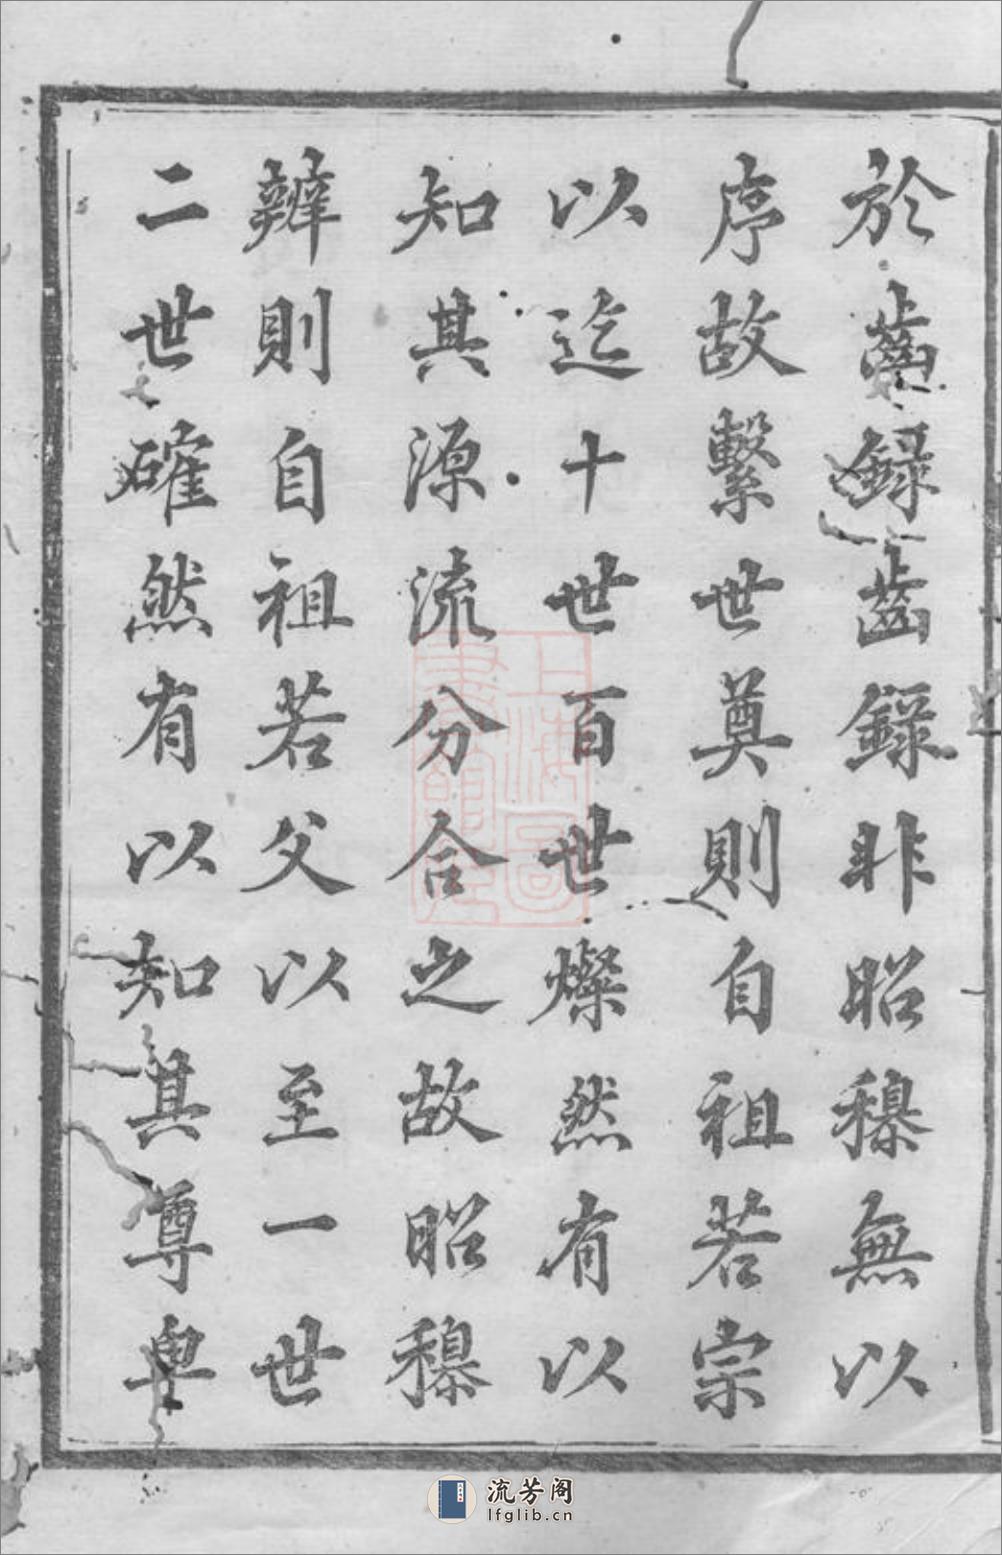 於齒錄齒錄非昭穆無以
序故繫世奠則自祖若宗
以迄十世百世燦然有以
知其源流分合之故昭穆
辨則自祖若父以至一世
二世確然有以知其尊卑
上海圖書館藏
流芳阁
lfglib.cn